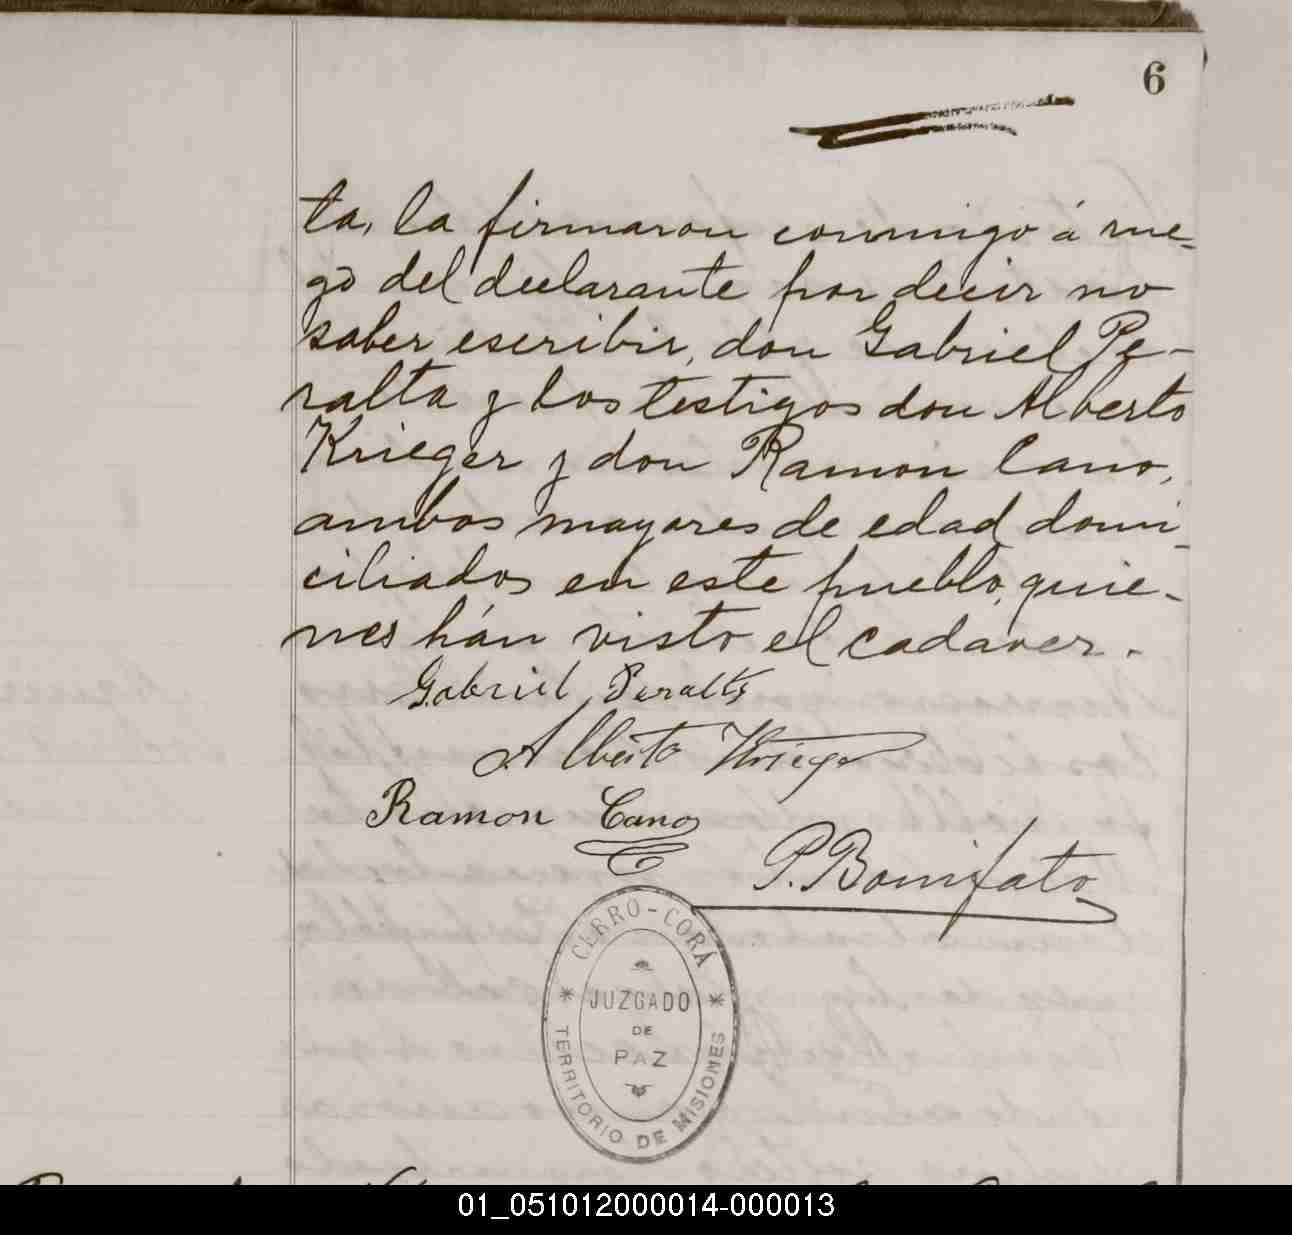 6
ta, la firmaron conmigo á rue-
go del declarante por decir no
saber escribir, don Gabriel Pe-
ralta y los testigos don Alberto
Krieger y don Ramón Cano,
ambos mayores de edad domi-
ciliados en este pueblo, quie-
nes hán visto el cadaver.
Gabriel Peralta
Alberto Krieger
Ramon Cano
P. Bonifato
CERRO-CORÁ
JUZGADO
DE
PAZ
TERRITORIO DE MISIONES
01_051012000014-000013